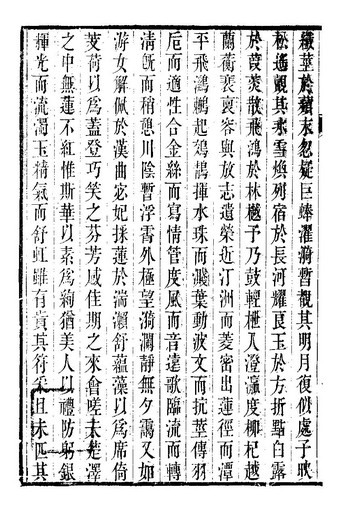 纖莖於蘋末忽疑巨蜯濯漪暫覩其明月復似處子映
松遙覿其氷雪煥列宿於長河耀良玉於方折點白露
於葭菼散飛鴻於林樾子乃鼓輕枻入澄瀛度柳杞越
蘭蘅裵裒容與放志遺榮近汀洲而菱密出蓮徑而潭
平飛鴻鵷起𫛛鶄揮水珠而濺葉動波文而抗莖傳羽
巵而適性合金絲而寫情管度風而音遠歌臨流而轉
淸旣而稍憩川陰暫浮霄外極望漪瀾靜無夕靄又如
游女解佩於漢曲宓妃採蓮於湍瀨舒蘊藻以爲席倚
芰荷以爲蓋登巧笑之芬芳感佳期之來會嗟夫楚澤
之中無蓮不紅惟斯華以素爲絢猶美人以禮防躬銀
揮光而流濁玉精氣而舒虹雖有貴其符采且未匹其